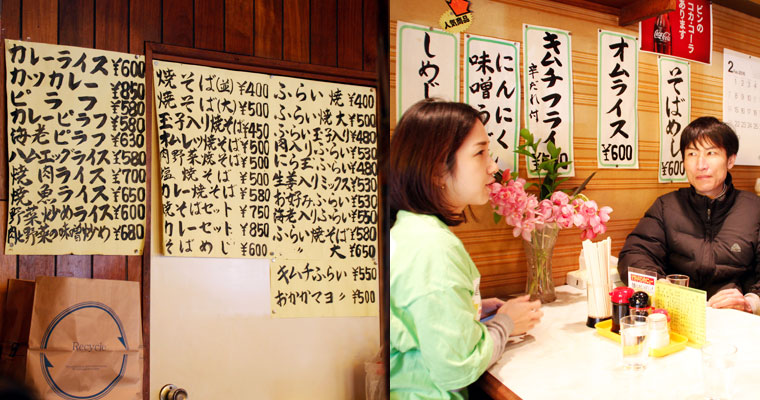 カレーライス ¥600
カツカレー ¥850
ピラフ ¥580
カレーピラフ ¥580
海老ピラフ ¥630
ハムエッグライス ¥580
焼肉ライス ¥700
焼魚ライス ¥650
野菜炒めライス ¥600
肉と野菜の味噌炒め ¥680
焼そば(並) ¥400
焼そば(大) ¥500
玉子入り焼そば ¥450
オムレツ焼そば ¥500
肉野菜焼そば ¥500
塩焼そば ¥500
カレー焼そば ¥580
焼そばセット ¥750
カレーセット ¥850
そばめし ¥600
ふらい焼 ¥400
ふらい(大) ¥500
玉子入り ¥480
肉入りふらい ¥530
にら玉ふらい ¥480
生姜入りミックス ¥530
お好みふらい ¥530
海老入りふらい ¥550
ふらい焼そば ¥580
〃 大 ¥650
キムチふらい ¥550
おかかマヨ〃 ¥500
Recycle
人気商品
しめじ
にんにく
味噌う
キムチフライ
辛だれ付
¥550
オムライス
¥600
そばめし
¥600
ビンの
コカ・コーラ
あります
Coca-Cola
2